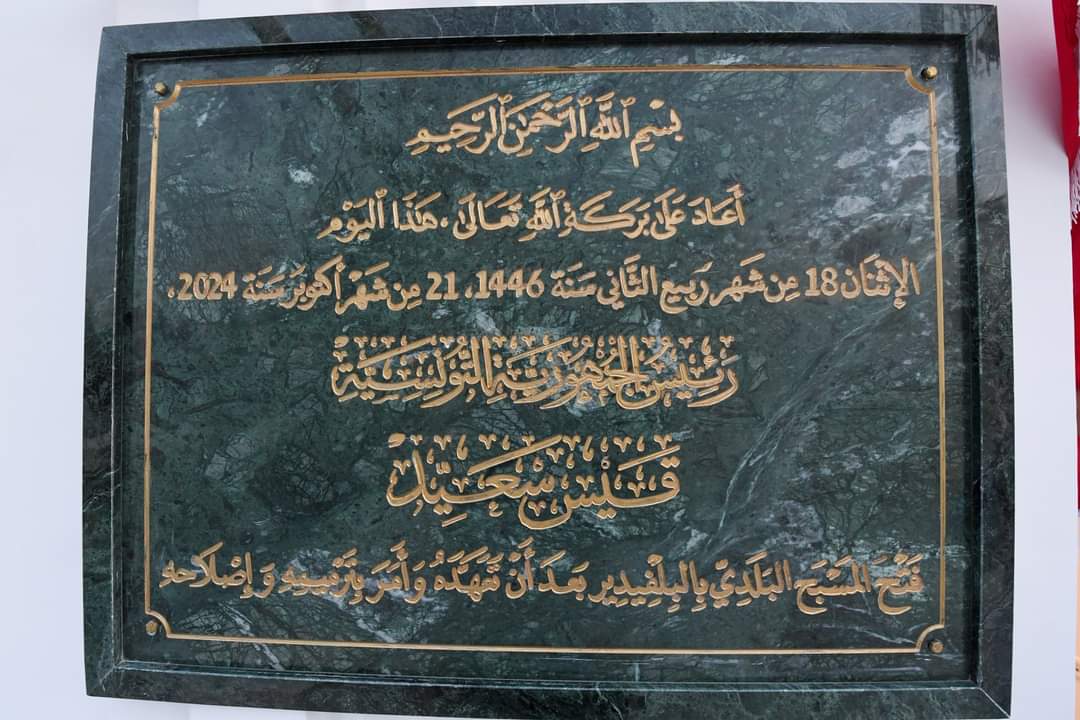 بِسْمِ ٱللَّهِ ٱلرَّحْمَٰنِ ٱلرَّحِيمِ
أَعَادَ عَلَى بَرَكَةِ ٱللَّهِ تَعَالَى، هَذَا الْيَوْم
الإِثْنَان 18 مِن شَهر رَبِيع الثَّانِي سَنَة 1446، 21 مِن شَهْر أُكْتُوبَر سَنَة 2024،
رَئِيسُ الجُمْهُورِيَّةِ التُّونِسِيَّةِ
قَيْس سَعَيِّدْ
فَتْحَ المَسْبَحِ البَلَدِيِّ بِالبِلْفِيدِير بَعدَ أَنْ تَعَهَّدَهُ وَأَمَرَ بِتَرْمِيمِهِ وَإِصْلَاحِهِ